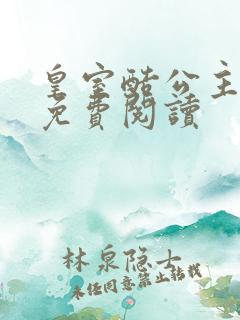 皇室酷公主
免費閱讀
林泉隐士
未经同意禁止转载